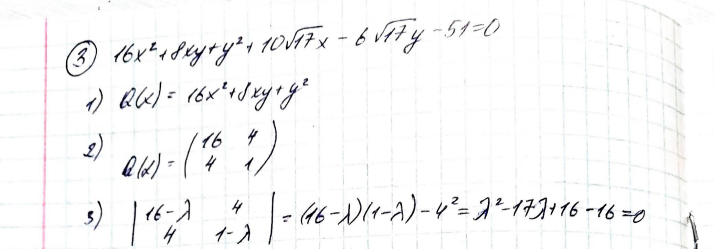 ③ 16x²+8xy+y²+10√17x-6√17y-51=0
1) Q(x)=16x²+8xy+y²
2) Q(x)=(16 4
4 1)
3) |16-λ 4
4 1-λ|=(16-λ)(1-λ)-4²=λ²-17λ+16-16=0